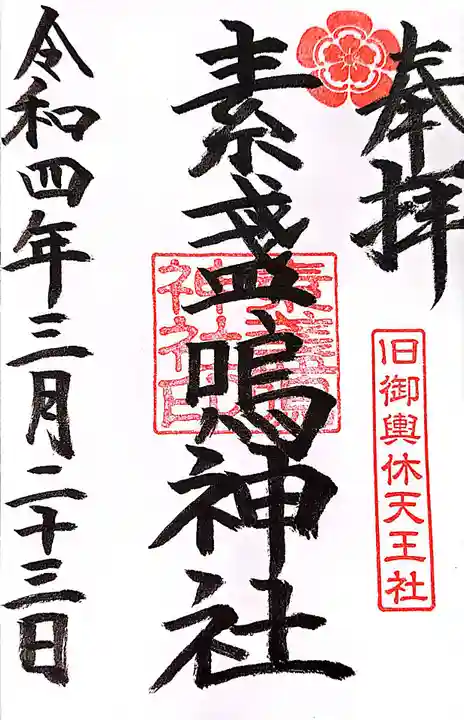 奉拝
旧御輿休天王社
素盞鳴神社
素盞嗚
神社印
令和四年三月二十三日